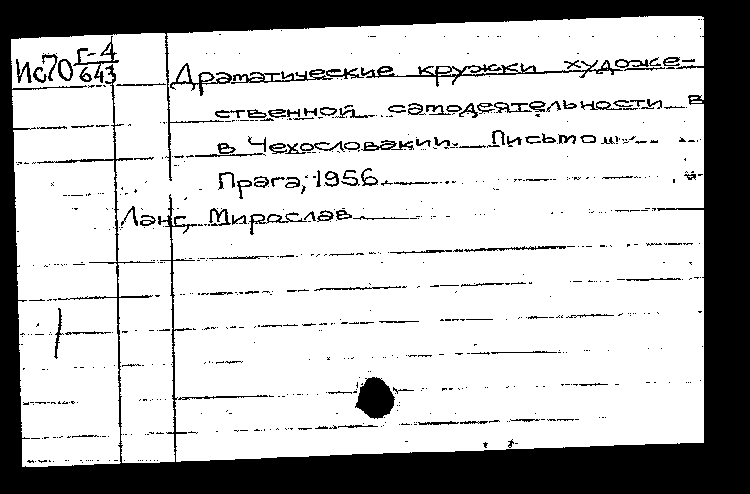 Ис70 Г-4/643
Драматические кружки художе-
ственной самодеятельности в
в Чехословакии. Письмо ...
Прага, 1956.
Ланс, Мирослав.